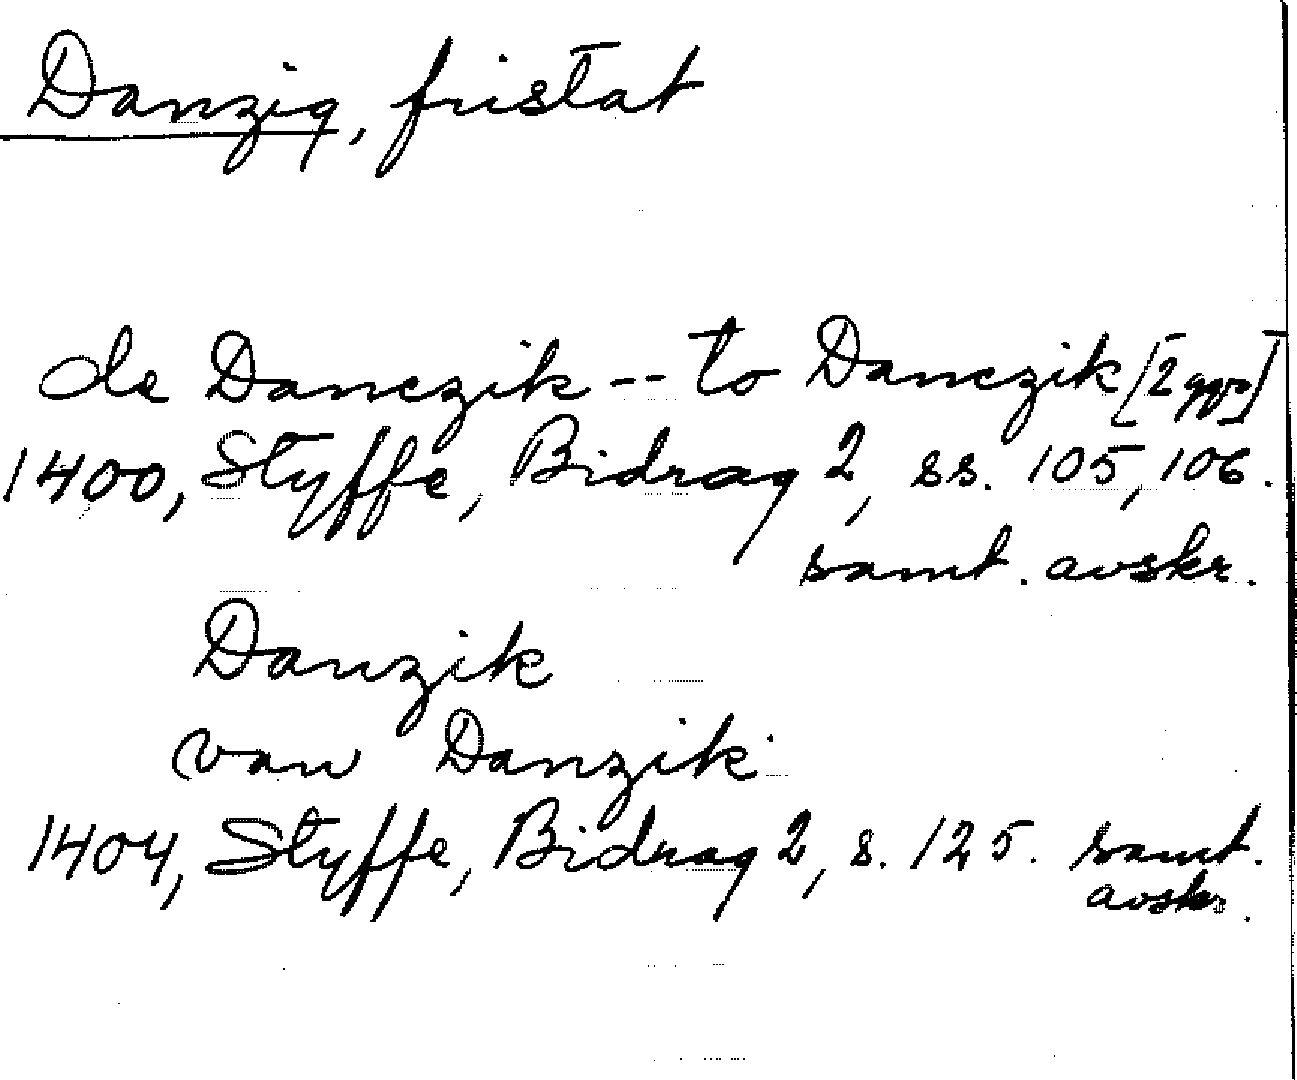 Danzig, fristat
de Danczik -- to Danczik [2 ggr]
1400, Styffe, Bidrag 2, ss. 105, 106.
samt. avskr.
Danzik
van Danzik
1404, Styffe, Bidrag 2, s. 125. samt.
avskr.